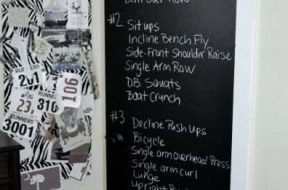 #2
Situps
Incline Bench Fly
Side-Front Shoulder Raise
Single Arm Row
D.B. Squats
Boat Crunch
#3
Decline Push Ups
Bicycle
Single arm overhead Press
Single arm curl
Lunge
Upright
201
23
106
3001